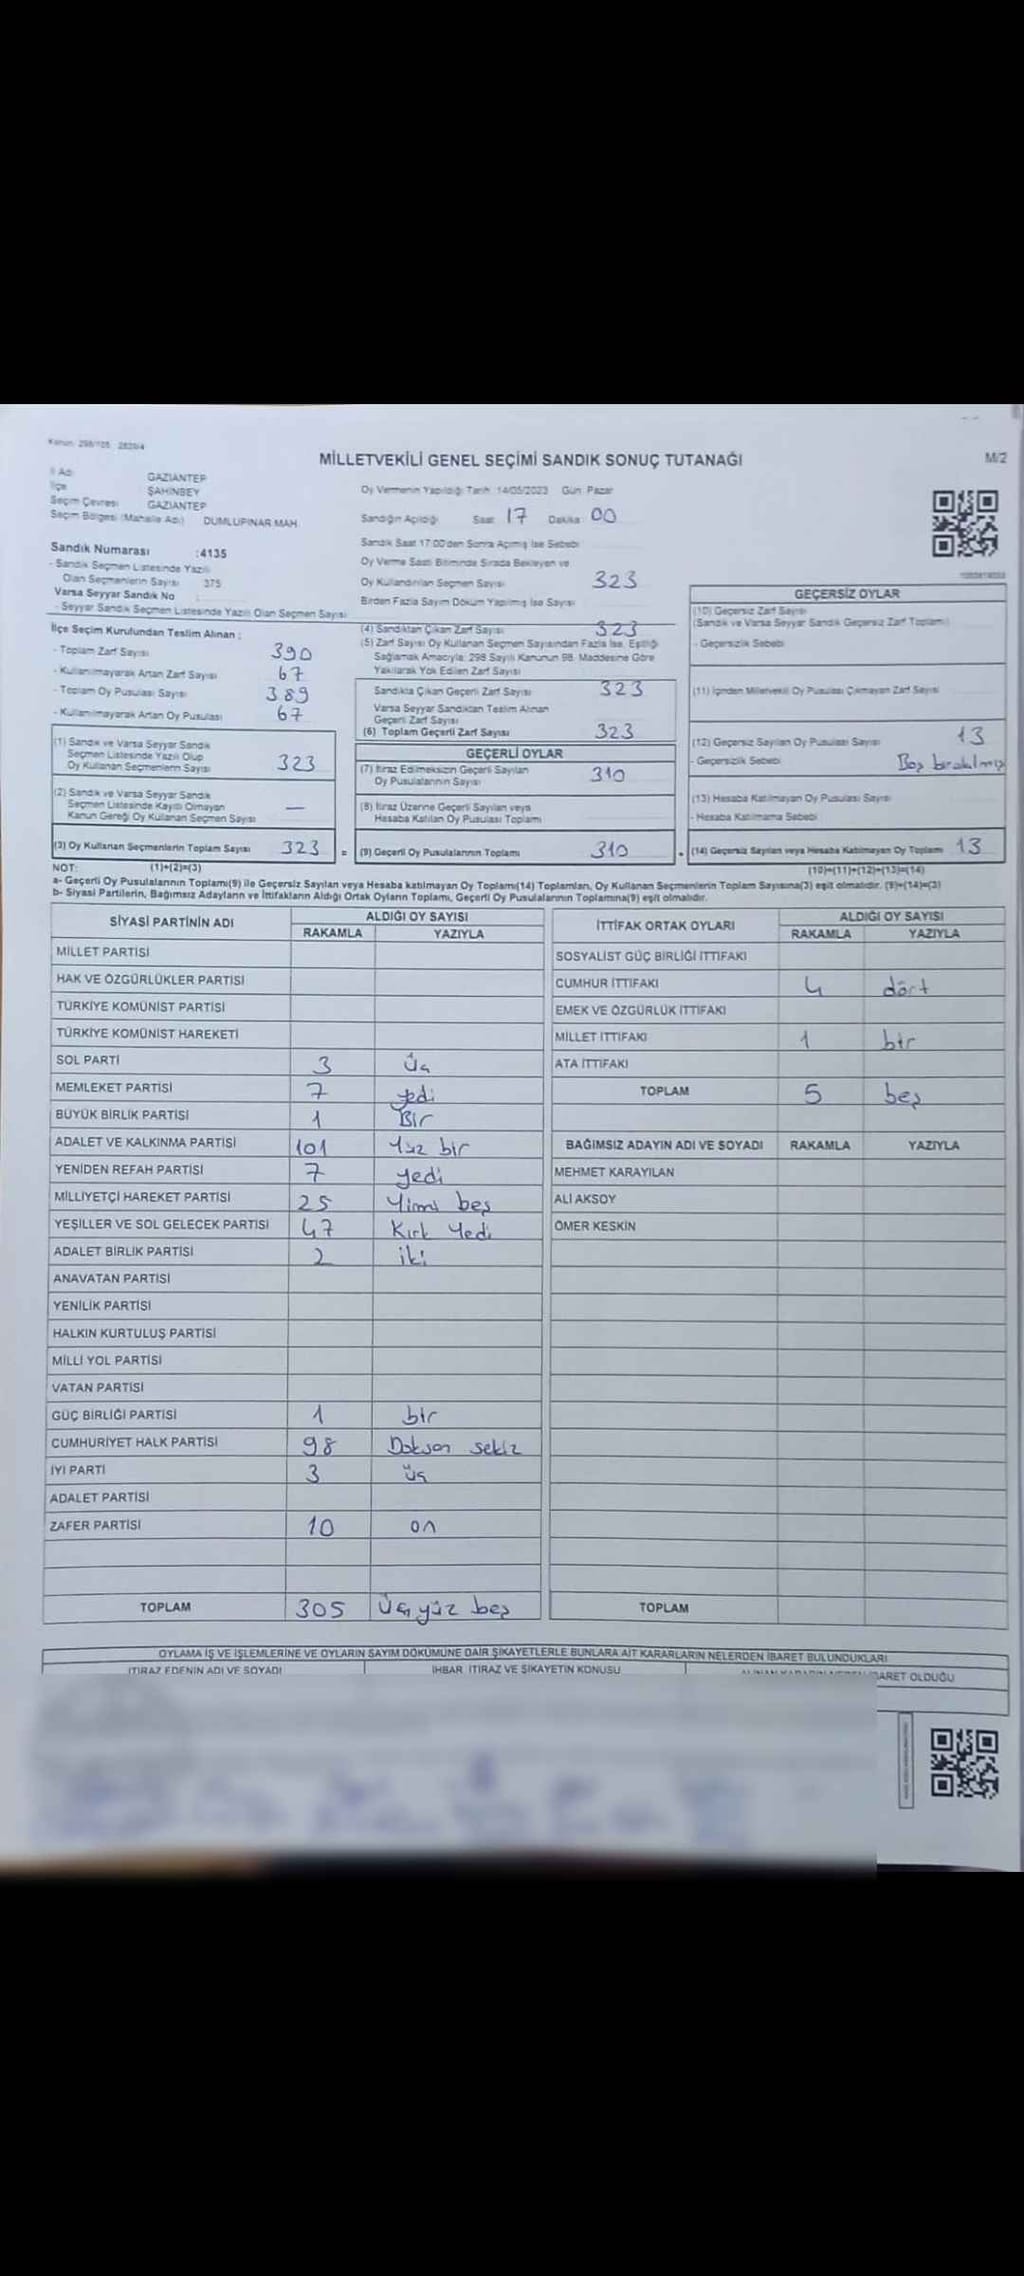 Kanun: 298/105 2839/4
MİLLETVEKİLİ GENEL SEÇİMİ SANDIK SONUÇ TUTANAĞI
M/2
İl Adı GAZİANTEP
İlçe ŞAHİNBEY
Seçim Çevresi GAZİANTEP
Seçim Bölgesi (Mahalle Adı) DUMLUPINAR MAH.
Sandık Numarası :4135
- Sandık Seçmen Listesinde Yazılı
Olan Seçmenlerin Sayısı 375
Varsa Seyyar Sandık No
- Seyyar Sandık Seçmen Listesinde Yazılı Olan Seçmen Sayısı
Oy Vermenin Yapıldığı Tarih: 14/05/2023 Gün: Pazar
Sandığın Açıldığı Saat 17 Dakika 00
Sandık Saat 17:00'den Sonra Açımış İse Sebebi
Oy Verme Saati Bitiminde Sırada Bekleyen ve
Oy Kullandırılan Seçmen Sayısı 323
Birden Fazla Sayım Döküm Yapılmış İse Sayısı
İlçe Seçim Kurulundan Teslim Alınan :
- Toplam Zarf Sayısı 390
- Kullanılmayarak Artan Zarf Sayısı 67
- Toplam Oy Pusulası Sayısı 389
- Kullanılmayarak Artan Oy Pusulası 67
(1) Sandık ve Varsa Seyyar Sandık
Seçmen Listesinde Yazılı Olup
Oy Kullanan Seçmenlerin Sayısı 323
(2) Sandık ve Varsa Seyyar Sandık
Seçmen Listesinde Kayıtlı Olmayan
Kanun Gereği Oy Kullanan Seçmen Sayısı —
(3) Oy Kullanan Seçmenlerin Toplam Sayısı 323 =
(4) Sandıktan Çıkan Zarf Sayısı 323
(5) Zarf Sayısı Oy Kullanan Seçmen Sayısından Fazla İse, Eşitliği
Sağlamak Amacıyla, 298 Sayılı Kanunun 98. Maddesine Göre
Yakılarak Yok Edilen Zarf Sayısı
Sandıkta Çıkan Geçerli Zarf Sayısı 323
Varsa Seyyar Sandıktan Teslim Alınan
Geçerli Zarf Sayısı
(6) Toplam Geçerli Zarf Sayısı 323
GEÇERLİ OYLAR
(7) İtiraz Edilmeksizin Geçerli Sayılan
Oy Pusulalarının Sayısı 310
(8) İtiraz Üzerine Geçerli Sayılan veya
Hesaba Katılan Oy Pusulası Toplamı
(9) Geçerli Oy Pusulalarının Toplamı 310
GEÇERSİZ OYLAR
(10) Geçersiz Zarf Sayısı
(Sandık ve Varsa Seyyar Sandık Geçersiz Zarf Toplamı)
- Geçersizlik Sebebi
(11) İçinden Milletvekili Oy Pusulası Çıkmayan Zarf Sayısı
(12) Geçersiz Sayılan Oy Pusulası Sayısı 13
- Geçersizlik Sebebi Boş bırakılmış
(13) Hesaba Katılmayan Oy Pusulası Sayısı
- Hesaba Katılmama Sebebi
(14) Geçersiz Sayılan veya Hesaba Katılmayan Oy Toplamı 13
NOT: (1)+(2)=(3) (10)+(11)+(12)+(13)=(14)
a- Geçerli Oy Pusulalarının Toplamı(9) ile Geçersiz Sayılan veya Hesaba katılmayan Oy Toplamı(14) Toplamları, Oy Kullanan Seçmenlerin Toplam Sayısına(3) eşit olmalıdır. (9)+(14)=(3)
b- Siyasi Partilerin, Bağımsız Adayların ve İttifakların Aldığı Ortak Oyların Toplamı, Geçerli Oy Pusulalarının Toplamına(9) eşit olmalıdır.
SİYASİ PARTİNİN ADI ALDIĞI OY SAYISI
RAKAMLA YAZIYLA
MİLLET PARTİSİ
HAK VE ÖZGÜRLÜKLER PARTİSİ
TÜRKİYE KOMÜNİST PARTİSİ
TÜRKİYE KOMÜNİST HAREKETİ
SOL PARTİ 3 üç
MEMLEKET PARTİSİ 7 yedi
BÜYÜK BİRLİK PARTİSİ 1 Bir
ADALET VE KALKINMA PARTİSİ 101 Yüz bir
YENİDEN REFAH PARTİSİ 7 yedi
MİLLİYETÇİ HAREKET PARTİSİ 25 Yirmi beş
YEŞİLLER VE SOL GELECEK PARTİSİ 47 Kırk Yedi
ADALET BİRLİK PARTİSİ 2 iki
ANAVATAN PARTİSİ
YENİLİK PARTİSİ
HALKIN KURTULUŞ PARTİSİ
MİLLİ YOL PARTİSİ
VATAN PARTİSİ
GÜÇ BİRLİĞİ PARTİSİ 1 bir
CUMHURİYET HALK PARTİSİ 98 Doksan sekiz
İYİ PARTİ 3 üç
ADALET PARTİSİ
ZAFER PARTİSİ 10 on
TOPLAM 305 Üç yüz beş
İTTİFAK ORTAK OYLARI ALDIĞI OY SAYISI
RAKAMLA YAZIYLA
SOSYALİST GÜÇ BİRLİĞİ İTTİFAKI
CUMHUR İTTİFAKI 4 dört
EMEK VE ÖZGÜRLÜK İTTİFAKI
MİLLET İTTİFAKI 1 bir
ATA İTTİFAKI
TOPLAM 5 beş
BAĞIMSIZ ADAYIN ADI VE SOYADI RAKAMLA YAZIYLA
MEHMET KARAYILAN
ALİ AKSOY
ÖMER KESKİN
TOPLAM
OYLAMA İŞ VE İŞLEMLERİNE VE OYLARIN SAYIM DÖKÜMÜNE DAİR ŞİKAYETLERLE BUNLARA AİT KARARLARIN NELERDEN İBARET BULUNDUKLARI
İTİRAZ EDENİN ADI VE SOYADI İHBAR İTİRAZ VE ŞİKAYETİN KONUSU İBARET OLDUĞU